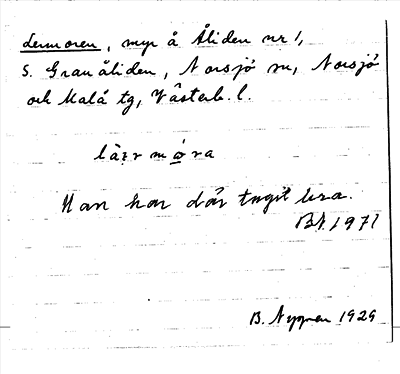 Lermoren, myr å Åliden nr 1,
S. Granåliden, Norsjö sn, Norsjö
och Malå tg, Västerb. l.
lär mora
Man har där tagit lera.
BN. 1971
B. Nyman 1929